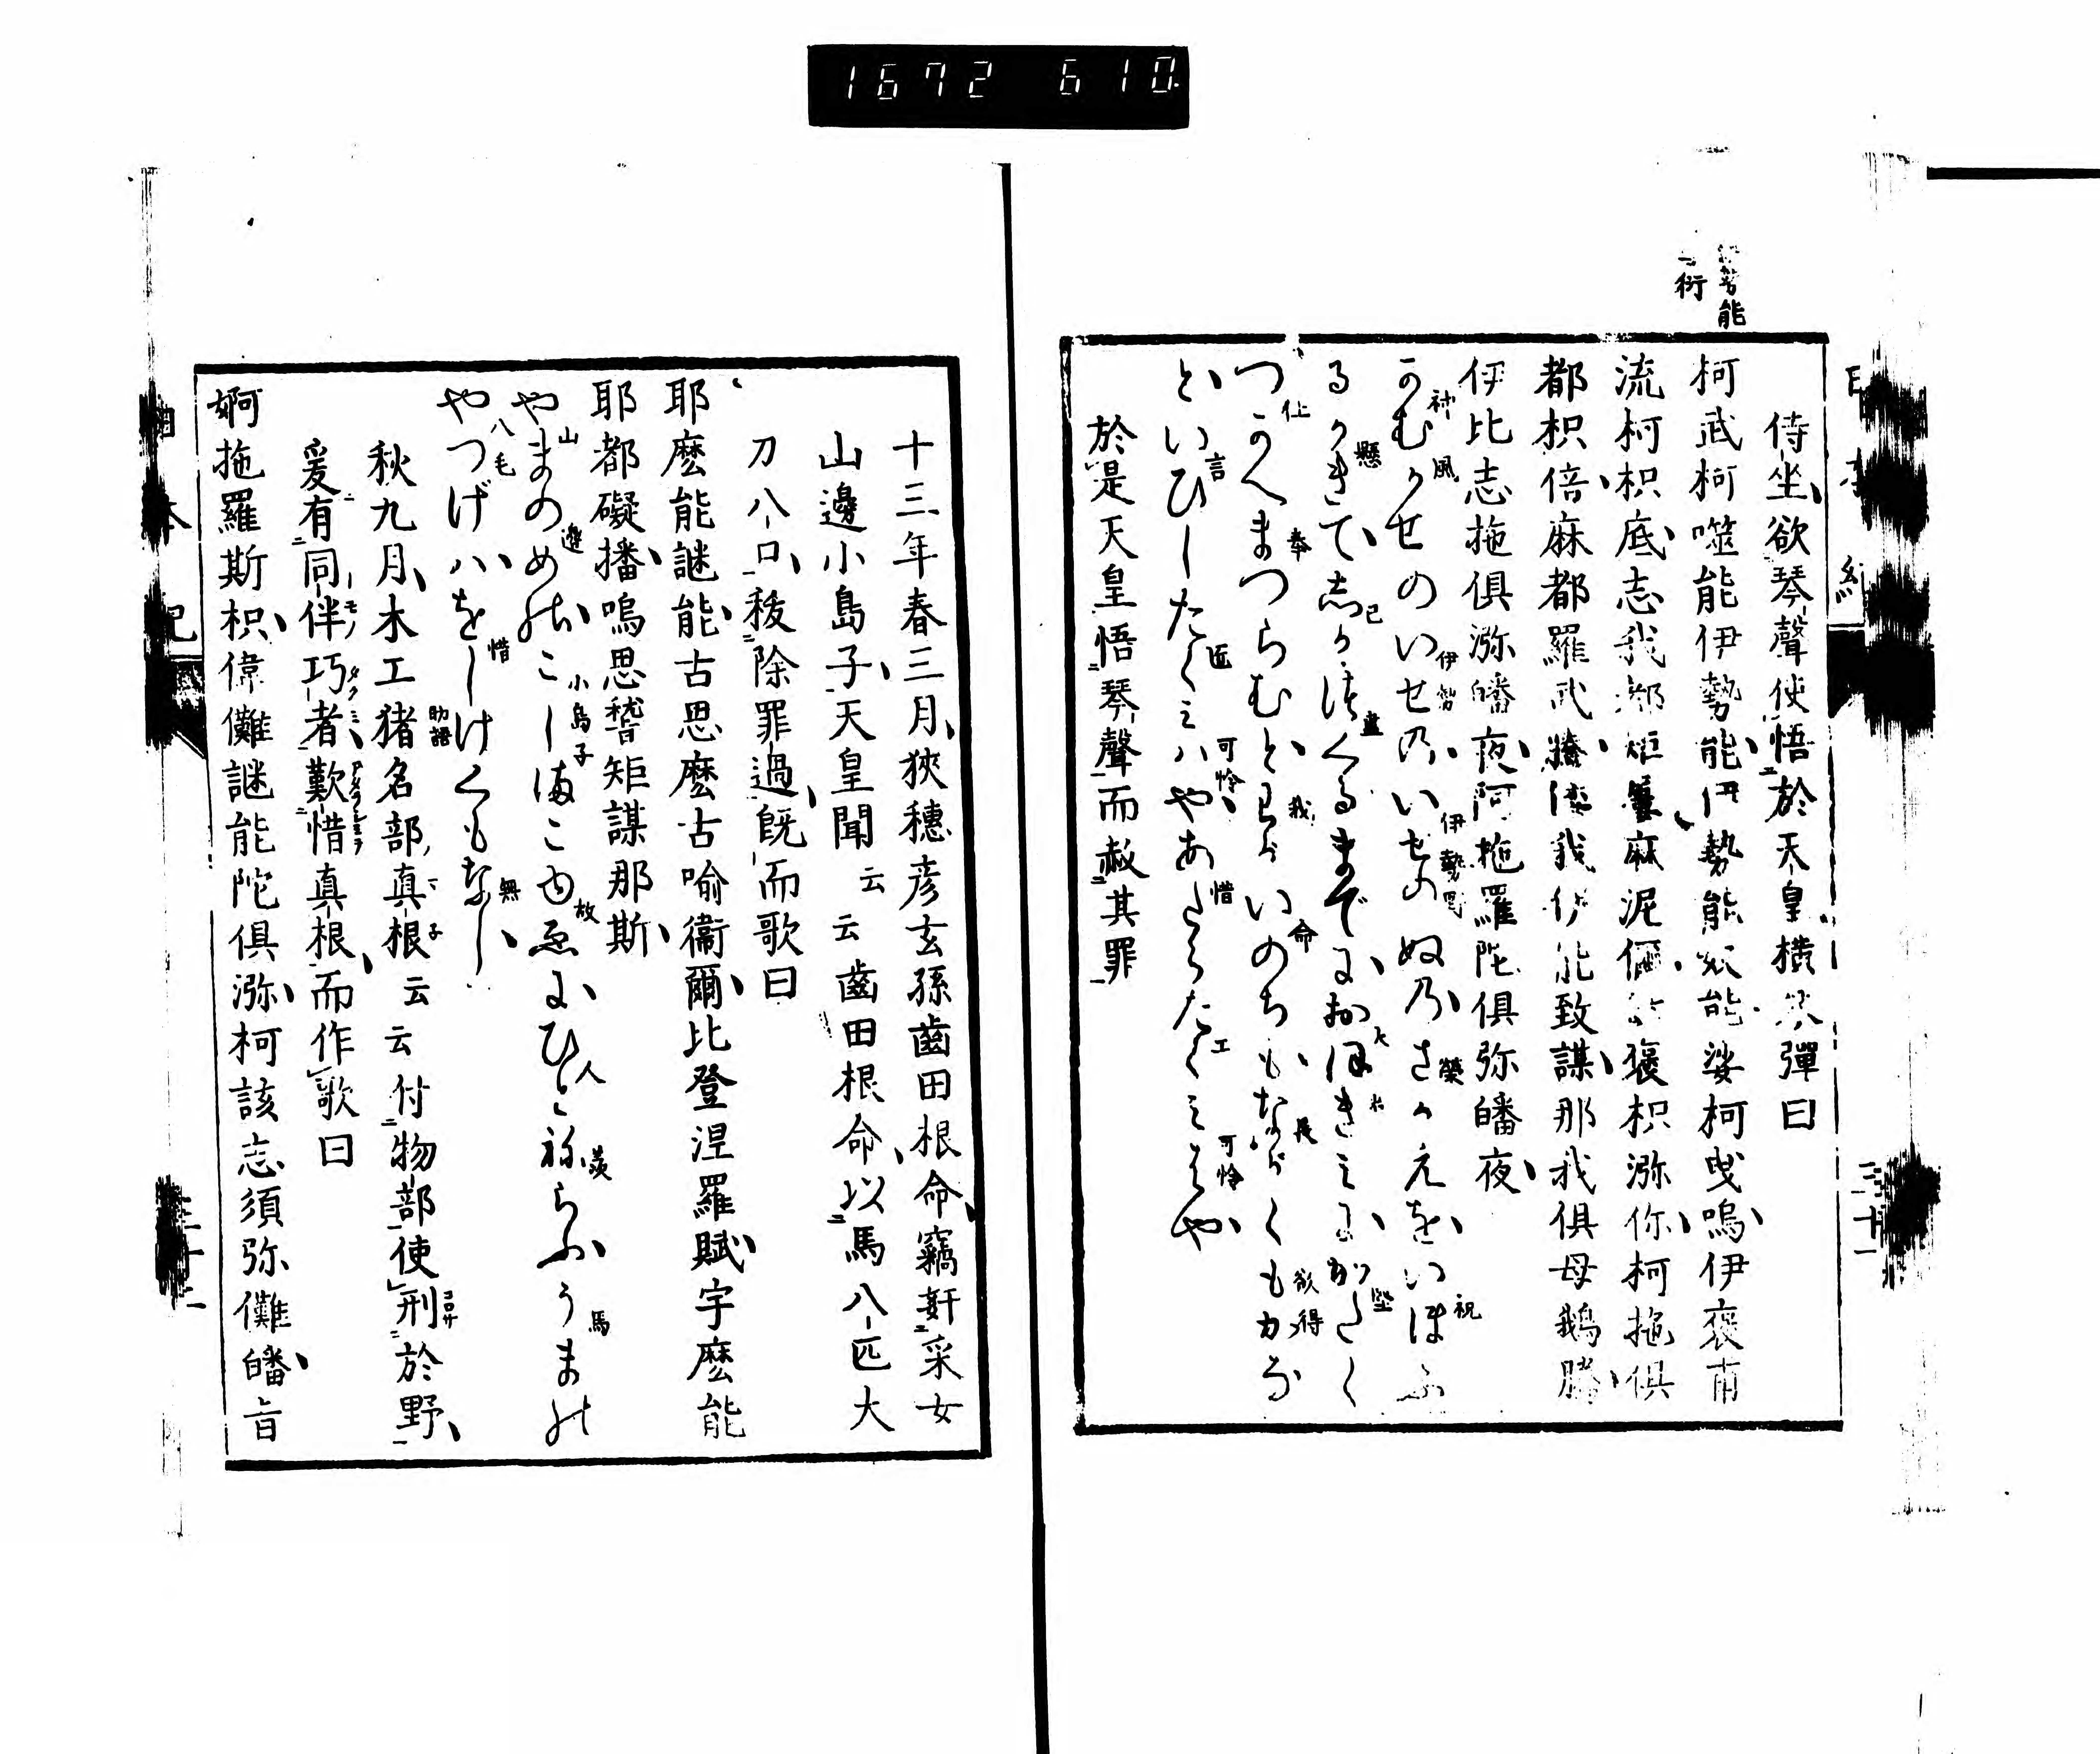 1672 610
勢能
衍
侍坐欲琴聲使悟於天皇横琴彈曰
柯武柯噬能伊勢能伊勢能奴能娑柯曳嗚伊裒甫
流柯枳底志我都矩屢麻泥儞於裒枳瀰你柯拖俱
都枳倍麻都羅武騰倭我伊能致謀那我俱母鵝騰
伊比志拖俱瀰皤夜阿拖羅陀俱弥皤夜
かむかせのいせのいせのぬのさかえをいほふ
神 風 伊勢 伊勢 榮 祝
るかきてしがつくるまでにおほきみにかたく
懸 己 盡 大 堅
つかへまつらむとわがいのちもながくもがな
仕 奉 我 命 長 欲得
といひしたくみはやあたらたくみはや
言 匠 可怜 惜 工 可怜
於是天皇悟琴聲而赦其罪
十三年春三月狹穗彦玄孫齒田根命竊姧采女
山邊小島子天皇聞云云齒田根命以馬八匹大
刀八口秡除罪過既而歌曰
耶麼能謎能古思麼古喩衞爾比登涅羅賦宇麼能
耶都礙播嗚思稽矩謀那斯
やまのめのこしまこゆゑにひとねらふうまの
山 邊 小島子 故 人 馬
やつげはをしけくもなし
八毛 惜 助語 無
秋九月木工猪名部真根云云付物部使刑於野
爰有同伴巧者歎惜真根而作歌曰
婀拖羅斯枳偉儺謎能陀俱瀰柯該志須弥儺皤旨
日本紀